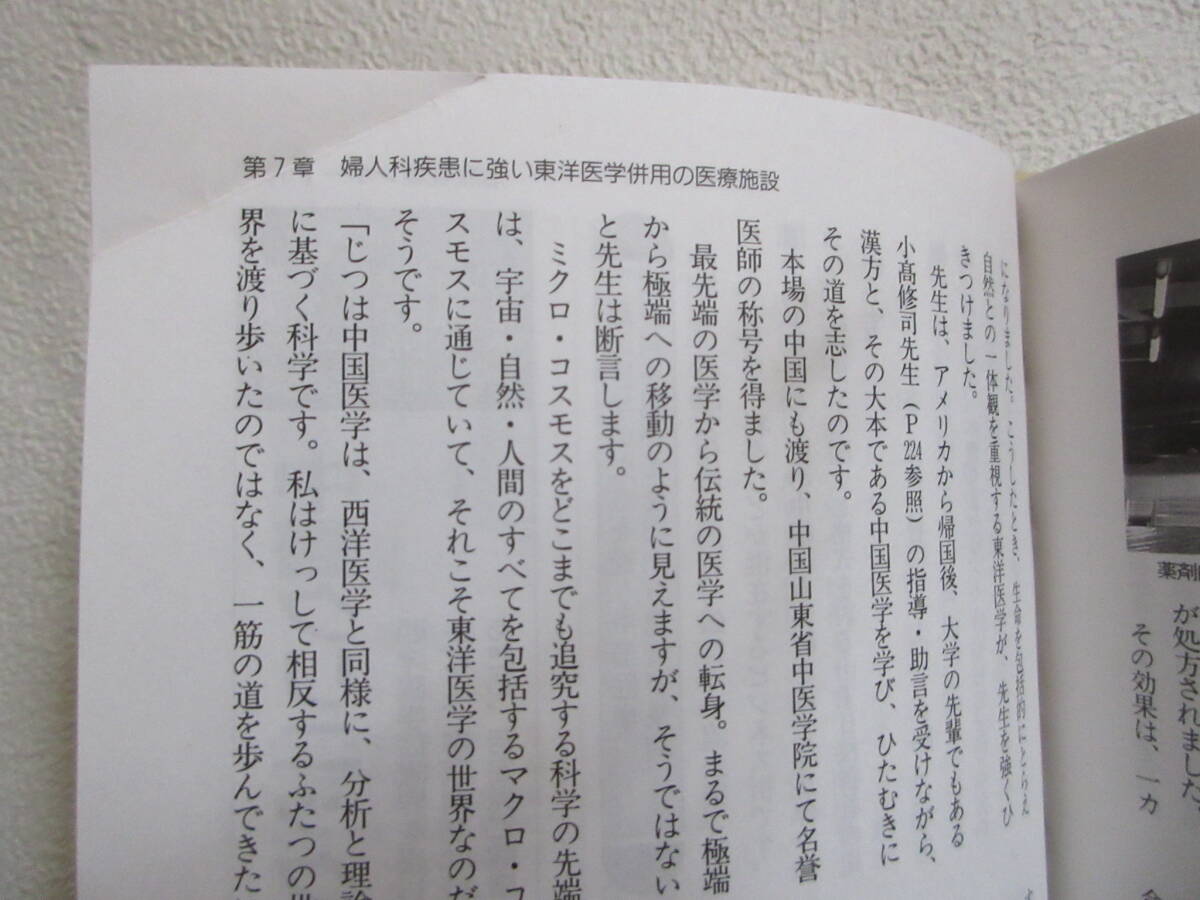 第7章 婦人科疾患に強い東洋医学併用の医療施設
になりました。こうしたとき、生命を包括的にとらえ
自然との一体観を重視する東洋医学が、先生を強くひ
きつけました。
先生は、アメリカから帰国後、大学の先輩でもある
小髙修司先生(P224参照)の指導・助言を受けながら、
漢方と、その大本である中国医学を学び、ひたむきに
その道を志したのです。
本場の中国にも渡り、中国山東省中医学院にて名誉
医師の称号を得ました。
最先端の医学から伝統の医学への転身。まるで極端
から極端への移動のように見えますが、そうではない
と先生は断言します。
ミクロ・コスモスをどこまでも追究する科学の先端
は、宇宙・自然・人間のすべてを包括するマクロ・コ
スモスに通じていて、それこそ東洋医学の世界なのだ
そうです。
「じつは中国医学は、西洋医学と同様に、分析と理論
に基づく科学です。私はけっして相反するふたつの世
界を渡り歩いたのではなく、一筋の道を歩んできた
薬剤
が処方されました
その効果は、一カ